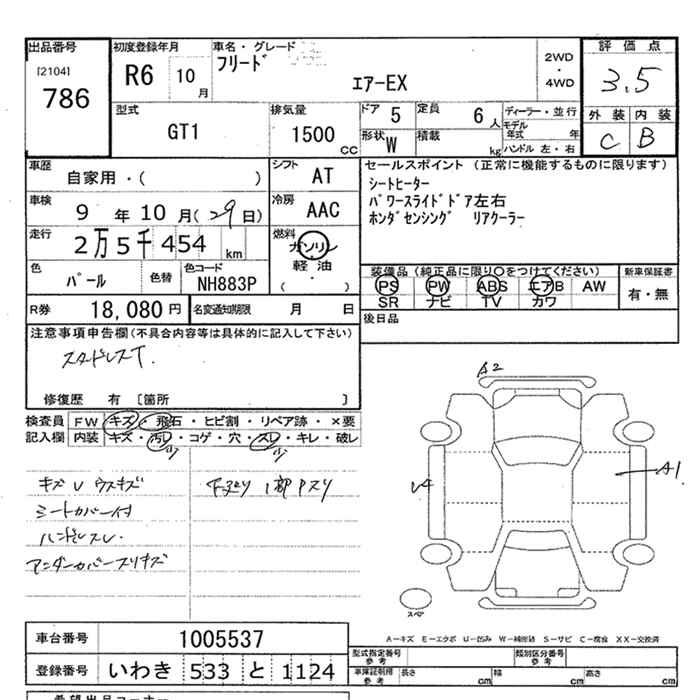 出品番号
[2104]
786
初度登録年月
R6 10 月
車名・グレード
フリード
エアーEX
2WD
・
4WD
評価点
3.5
外装 内装
C B
型式
GT1
排気量
1500 CC
ドア 5
定員 6 人
形状 W
積載 kg
ディーラー・並行
モデル年式 年
ハンドル 左・右
車歴
自家用・( )
シフト AT
車検 9 年 10 月(29日)
冷房 AAC
走行 2万5千454 km
燃料
ガソリン
軽油
(・)
色 パール
色替
色コード NH883P
セールスポイント (正常に機能するものに限ります)
シートヒーター
パワースライドドア左右
ホンダセンシング リアクーラー
装備品(純正品に限り○をつけてください)
PS PW ABS エアB AW
SR ナビ TV カワ
新車保証書
有・無
R券 18,080 円
名変通知期限 月 日
後日品
注意事項申告欄(不具合内容等は具体的に記入して下さい)
スタッドレスT.
修復歴 有 [箇所 ]
検査員記入欄
FW キズ・飛石・ヒビ割・リペア跡・×要
内装 キズ・汚レ・コゲ・穴・スレ・キレ・破レ
キズU ウスキズ
シートカバー付
ハンドルスレ
アンダーカバースリキズ
下廻り 1部Pスリ
A2
A1
U4
スペア
A-キズ E-エクボ U-凹み W-補修跡 S-サビ C-腐食 XX-交換済
車台番号 1005537
登録番号 いわき 533 と 1124
型式指定番号
参考
類別区分番号
参考
車庫証明用
参考
長さ cm 幅 cm 高さ cm
希望出品コーナー